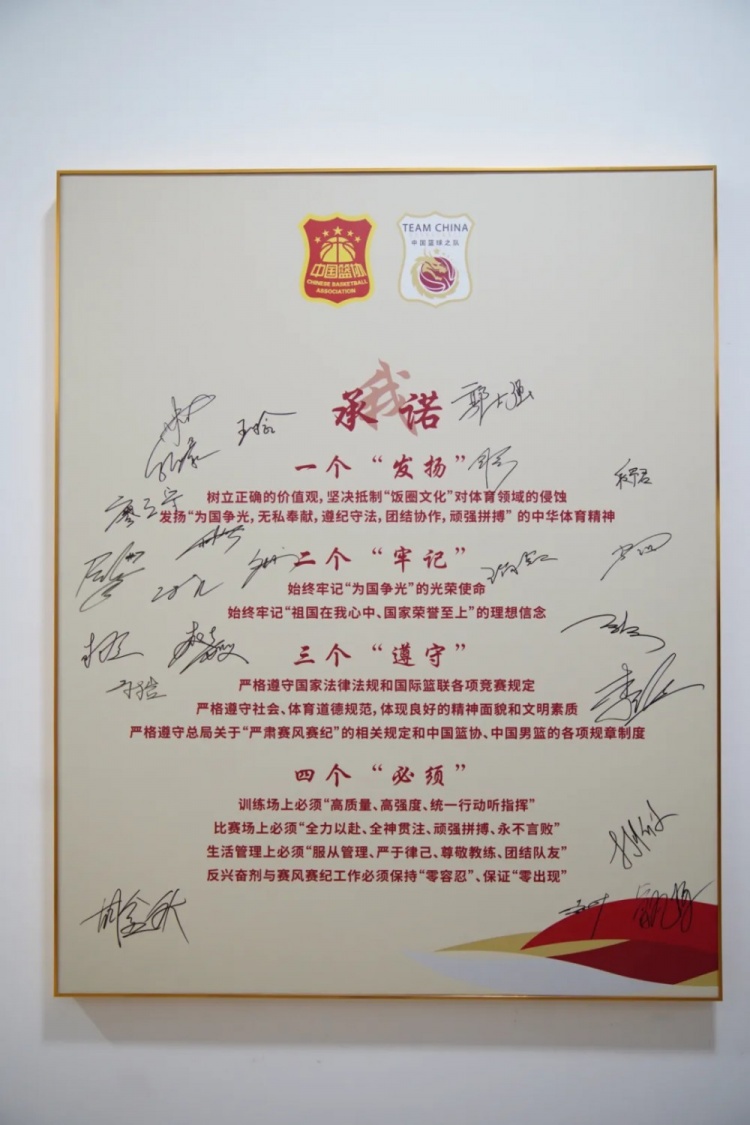 中国篮协
CHINESE BASKETBALL
ASSOCIATION
TEAM CHINA
中国篮球之队
我
承诺
郭士强
王晗
一个“发扬”
树立正确的价值观,坚决抵制“饭圈文化”对体育领域的侵蚀
发扬“为国争光,无私奉献,遵纪守法,团结协作,顽强拼搏”的中华体育精神
廖三宁
程君
二个“牢记”
始终牢记“为国争光”的光荣使命
始终牢记“祖国在我心中、国家荣誉至上”的理想信念
三个“遵守”
严格遵守国家法律法规和国际篮联各项竞赛规定
严格遵守社会、体育道德规范,体现良好的精神面貌和文明素质
严格遵守总局关于“严肃赛风赛纪”的相关规定和中国篮协、中国男篮的各项规章制度
四个“必须”
训练场上必须“高质量、高强度、统一行动听指挥”
比赛场上必须“全力以赴、全神贯注、顽强拼搏、永不言败”
生活管理上必须“服从管理、严于律己、尊敬教练、团结队友”
反兴奋剂与赛风赛纪工作必须保持“零容忍”、保证“零出现”
胡金秋